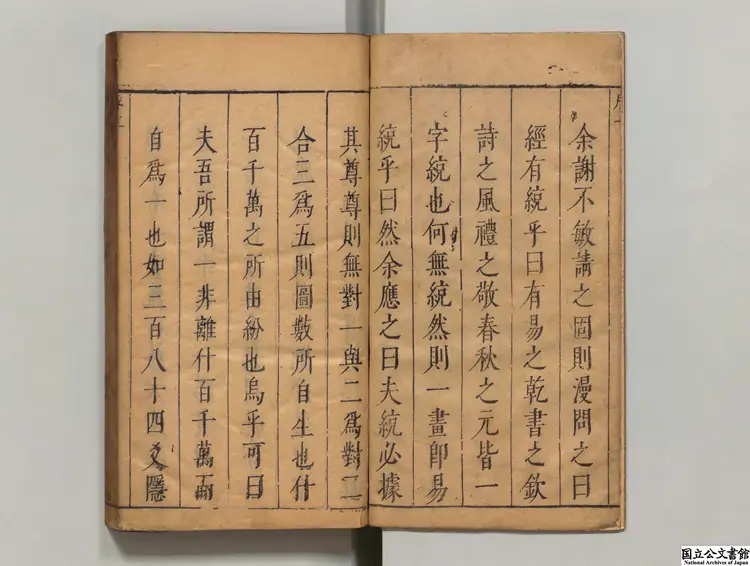 余謝不敏請之固則漫問之曰
經有統乎曰有易之乾書之欽
詩之風禮之敬春秋之元皆一
字統也何無統然則一畫即易
統乎曰然余應之曰夫統必據
其尊尊則無對一與二爲對二
合三爲五則圖數所自生也什
百千萬之所由紛也烏乎可曰
夫吾所謂一非離什百千萬而
自爲一也如三百八十四爻隱
国立公文書館
National Archives of Japan